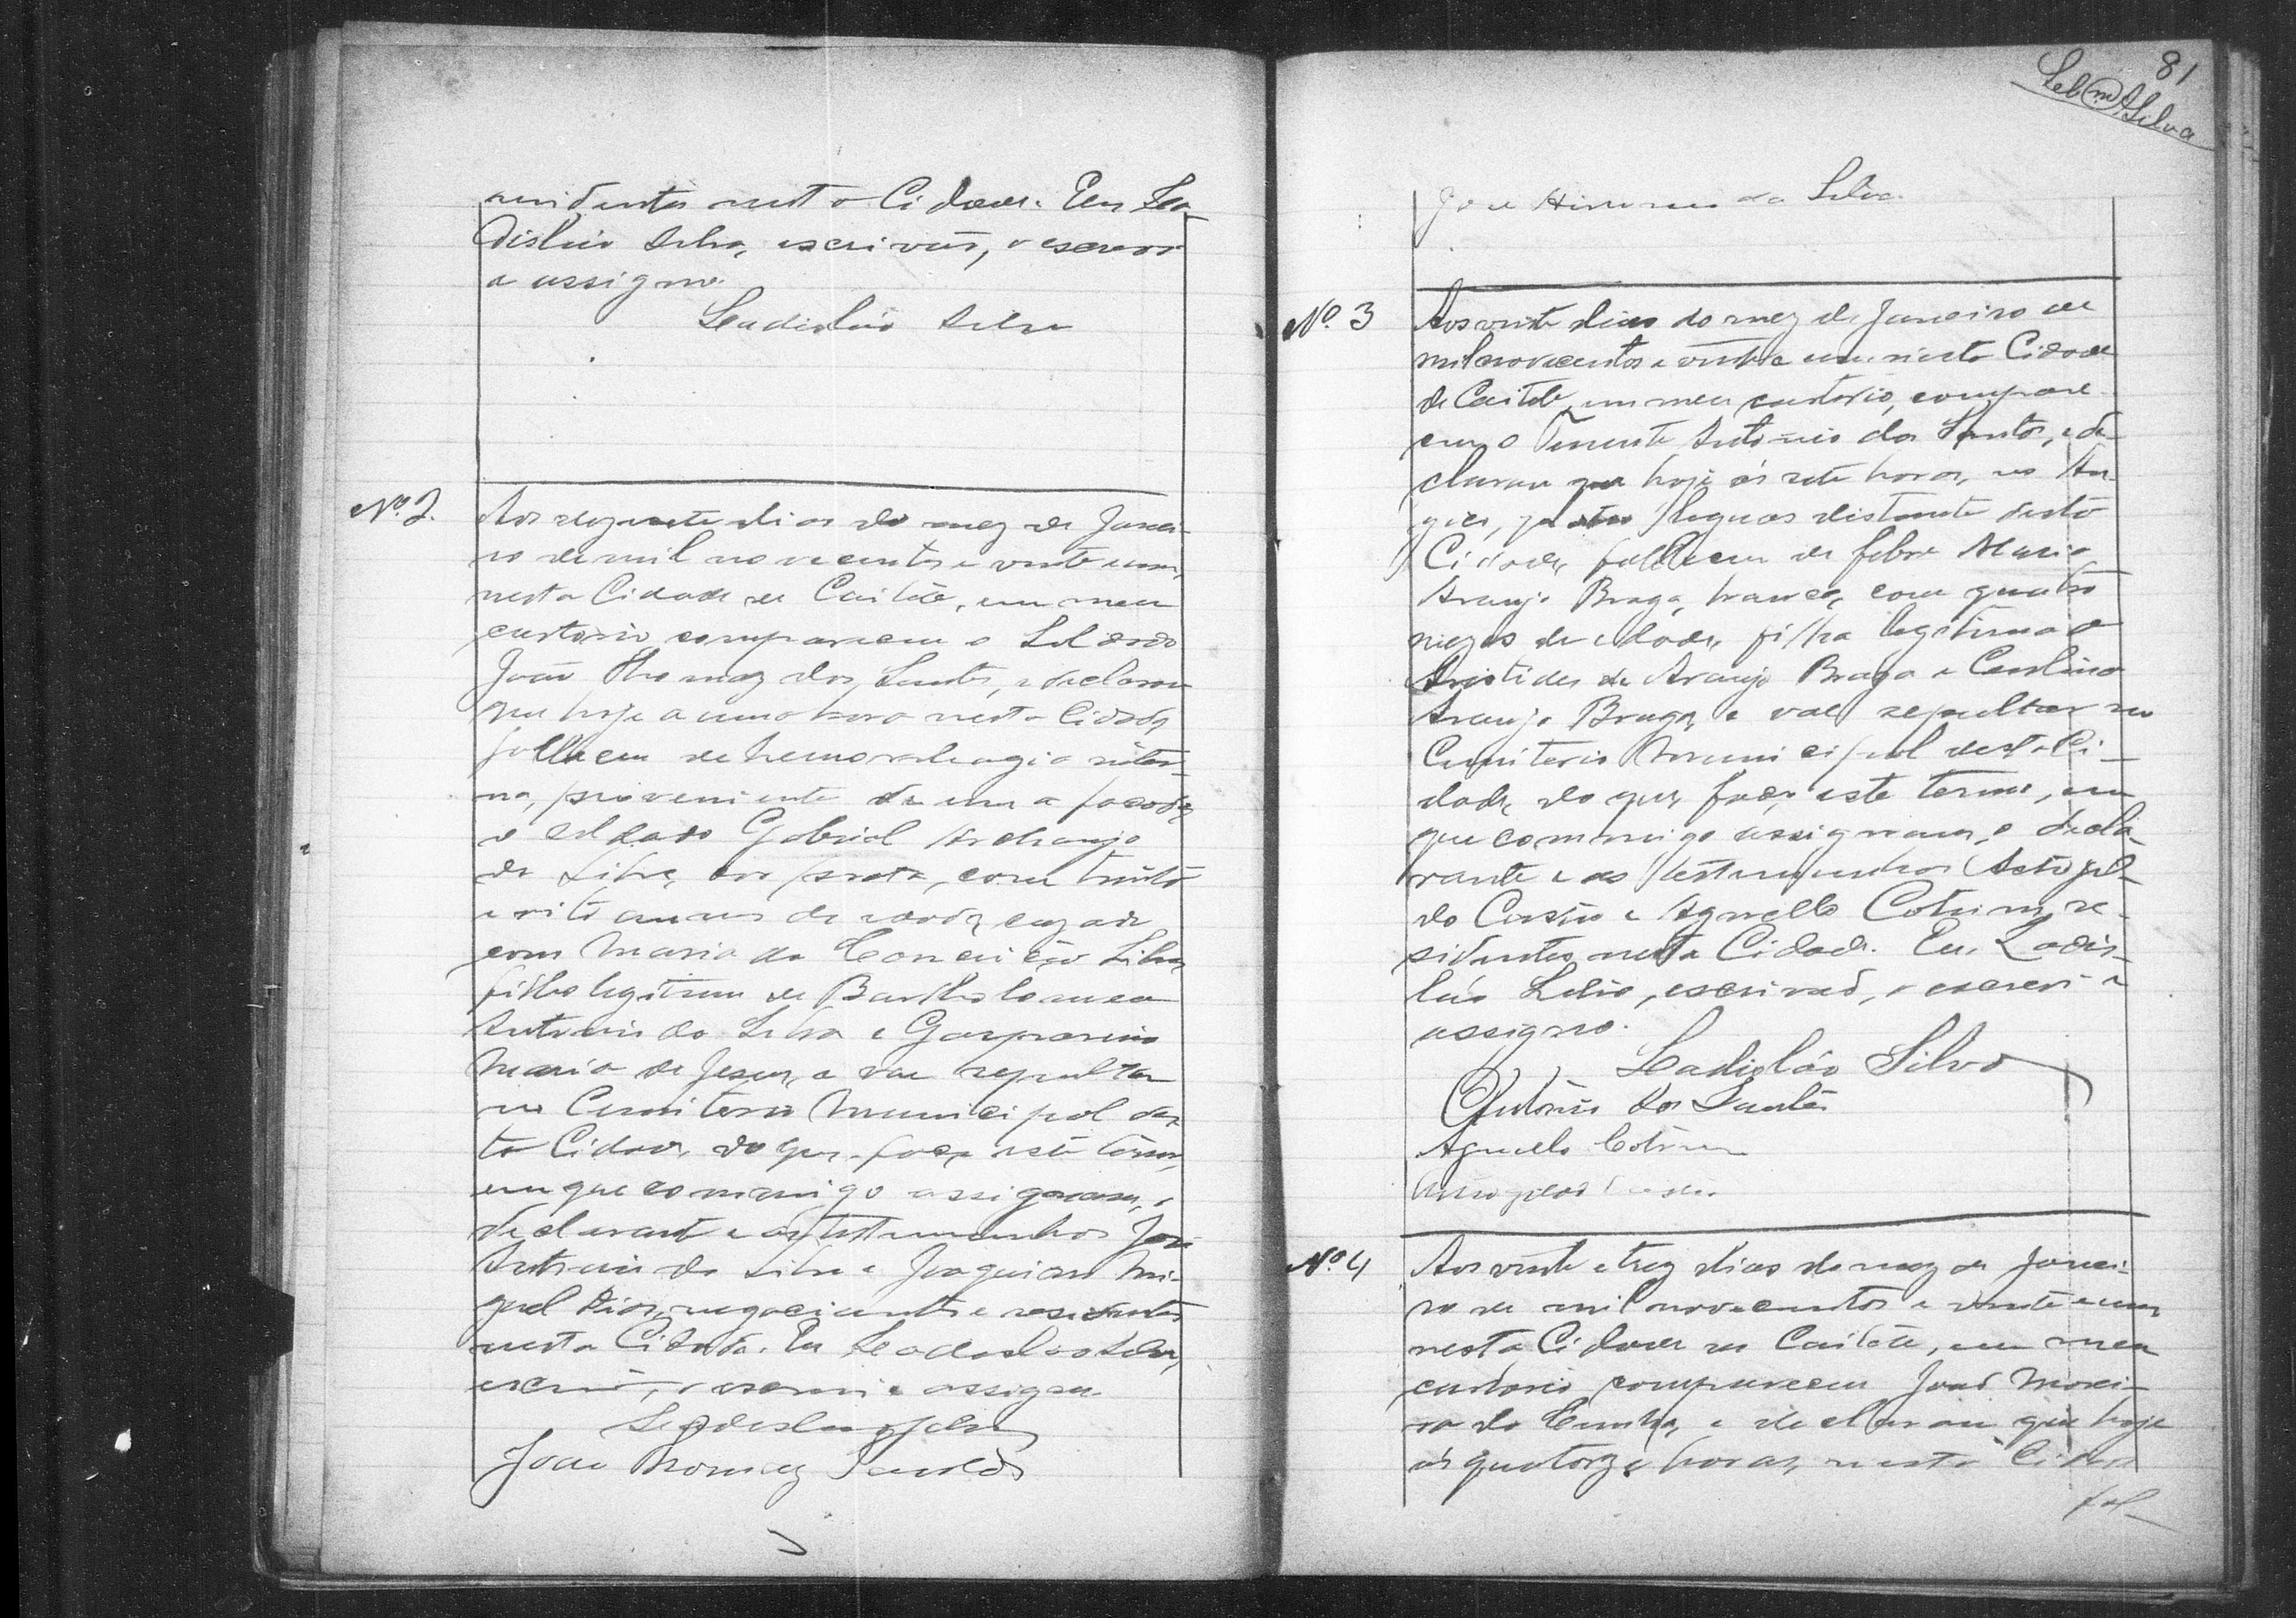 residentes nesta Cidade. Eu Lea-
disláo Silva, escrivão, o escrevi
e assigno.
Leadisláo Silva
Nº 2.
Aos dezesete dias do mez de Janei-
ro de mil novecentos e vinte e um,
nesta Cidade de Caiteté, em meu
cartorio compareceu o Soldado
João Thomaz dos Santos, e declarou
que hoje a uma hora nesta Cidade,
falleceu de hemorrhagia inter-
na, proveniente de uma facada,
o soldado Gabriel Archanjo
da Silva, cor preta, com trinta
e oito annos de idade, cazado
com Maria da Conceição Silva,
filho legitimo de Bartholomeu
Antonio da Silva e Gasparina
Maria de Jesus, e vae sepultar
no Cemiterio Municipal des-
ta Cidade, do que faço este termo,
em que commigo assignam, o
declarante e as testemunhas José
Antonio da Silva e Joaquim Mi-
guel Dias, negociantes e residentes
nesta Cidade. Eu Leadisláo Silva,
escrivão, o escrevi e assigno.
Leadisláo Silva
João Thomaz Santos
81
Silva
José da Silva
Nº 3
Aos vinte dias do mez de Janeiro de
mil novecentos e vinte e um, nesta Cidade
de Caiteté, em meu cartorio, compare-
ceu o Tenente Antonio dos Santos, e de-
clarou que hoje ás sete horas, no An-
gico, leguas distante desta
Cidade, falleceu de febre Maria
Araujo Braga, branca, com quatro
mezes de edade, filha legitima de
Aristides de Araujo Braga e Carolina
Araujo Braga, e vae sepultar no
Cemiterio Municipal desta Ci-
dade, do que, faço este termo, em
que commigo assignam, o decla-
rante e as testemunhas Astogil-
do e Agnello Cotrim, re-
sidentes nesta Cidade. Eu, Ladis-
láo Silva, escrivão, o escrevi e
assigno.
Leadisláo Silva
Antonio dos Santos
Agnello Cotrim
Nº 4
Aos vinte e trez dias do mez de Janei-
ro de mil novecentos e vinte e um,
nesta Cidade de Caiteté, em meu
cartorio, compareceu João Morei-
ra da Cunha, e declarou que hoje
ás quatorze horas, nesta Cidade
fal-